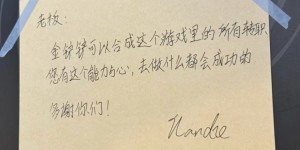 老板：
金铲铲可以合成这个游戏里的所有转职
您有这个能力与心，去做什么都会成功的
多谢你们！